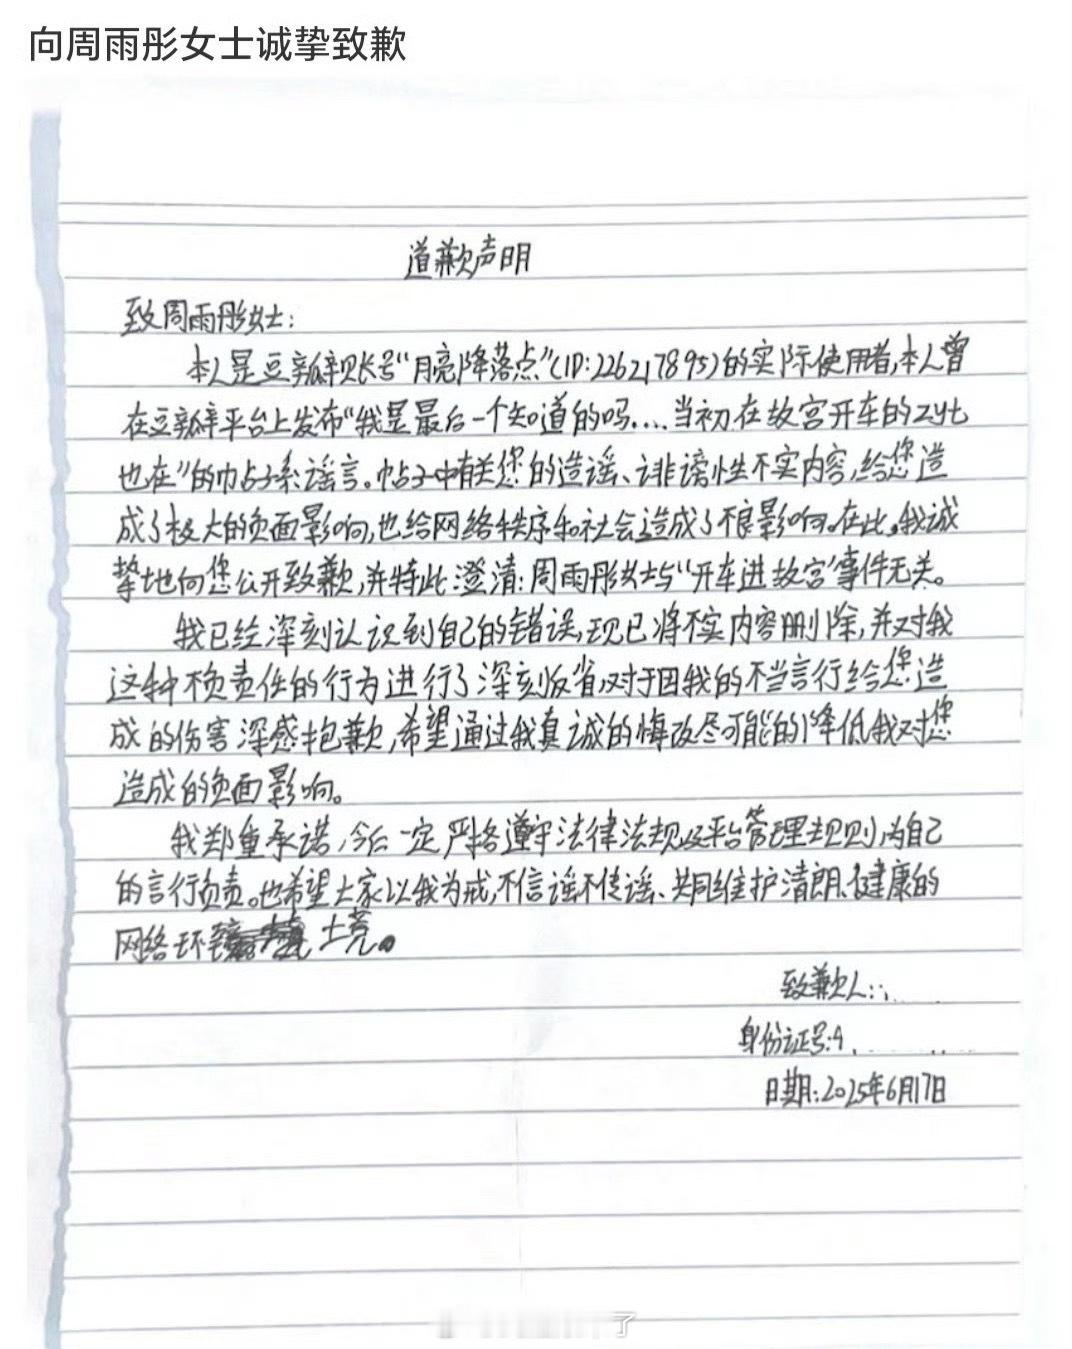 向周雨彤女士诚挚致歉
道歉声明
致周雨彤女士：
本人是豆瓣账号“月亮降落点”(ID:226217895)的实际使用者,本人曾
在豆瓣平台上发布“我是最后一个知道的吗....当初在故宫开车的zyt
也在”的帖子系谣言。帖子中有关您的造谣、诽谤性不实内容,给您造
成了极大的负面影响,也给网络秩序和社会造成了不良影响。在此,我诚
挚地向您公开致歉,并特此澄清:周雨彤女士与“开车进故宫”事件无关。
我已经深刻认识到自己的错误,现已将不实内容删除,并对我
这种不负责任的行为进行了深刻反省,对于因我的不当言行给您造
成的伤害深感抱歉,希望通过我真诚的悔改尽可能的降低我对您
造成的负面影响。
我郑重承诺,今后一定严格遵守法律法规及平台管理规则,为自己
的言行负责。也希望大家以我为戒,不信谣不传谣、共同维护清朗、健康的
网络环境。
致歉人:
身份证号:4
日期:2025年6月17日
了